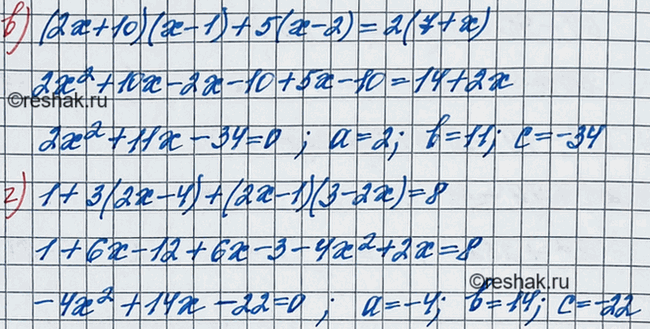 в) (2x+10)(x-1)+5(x-2)=2(7+x)
2x²+10x-2x-10+5x-10=14+2x
©reshak.ru
2x²+11x-34=0 ; a=2; b=11; c=-34
г) 1+3(2x-4)+(2x-1)(3-2x)=8
1+6x-12+6x-3-4x²+2x=8
©reshak.ru
-4x²+14x-22=0 ; a=-4; b=14; c=-22